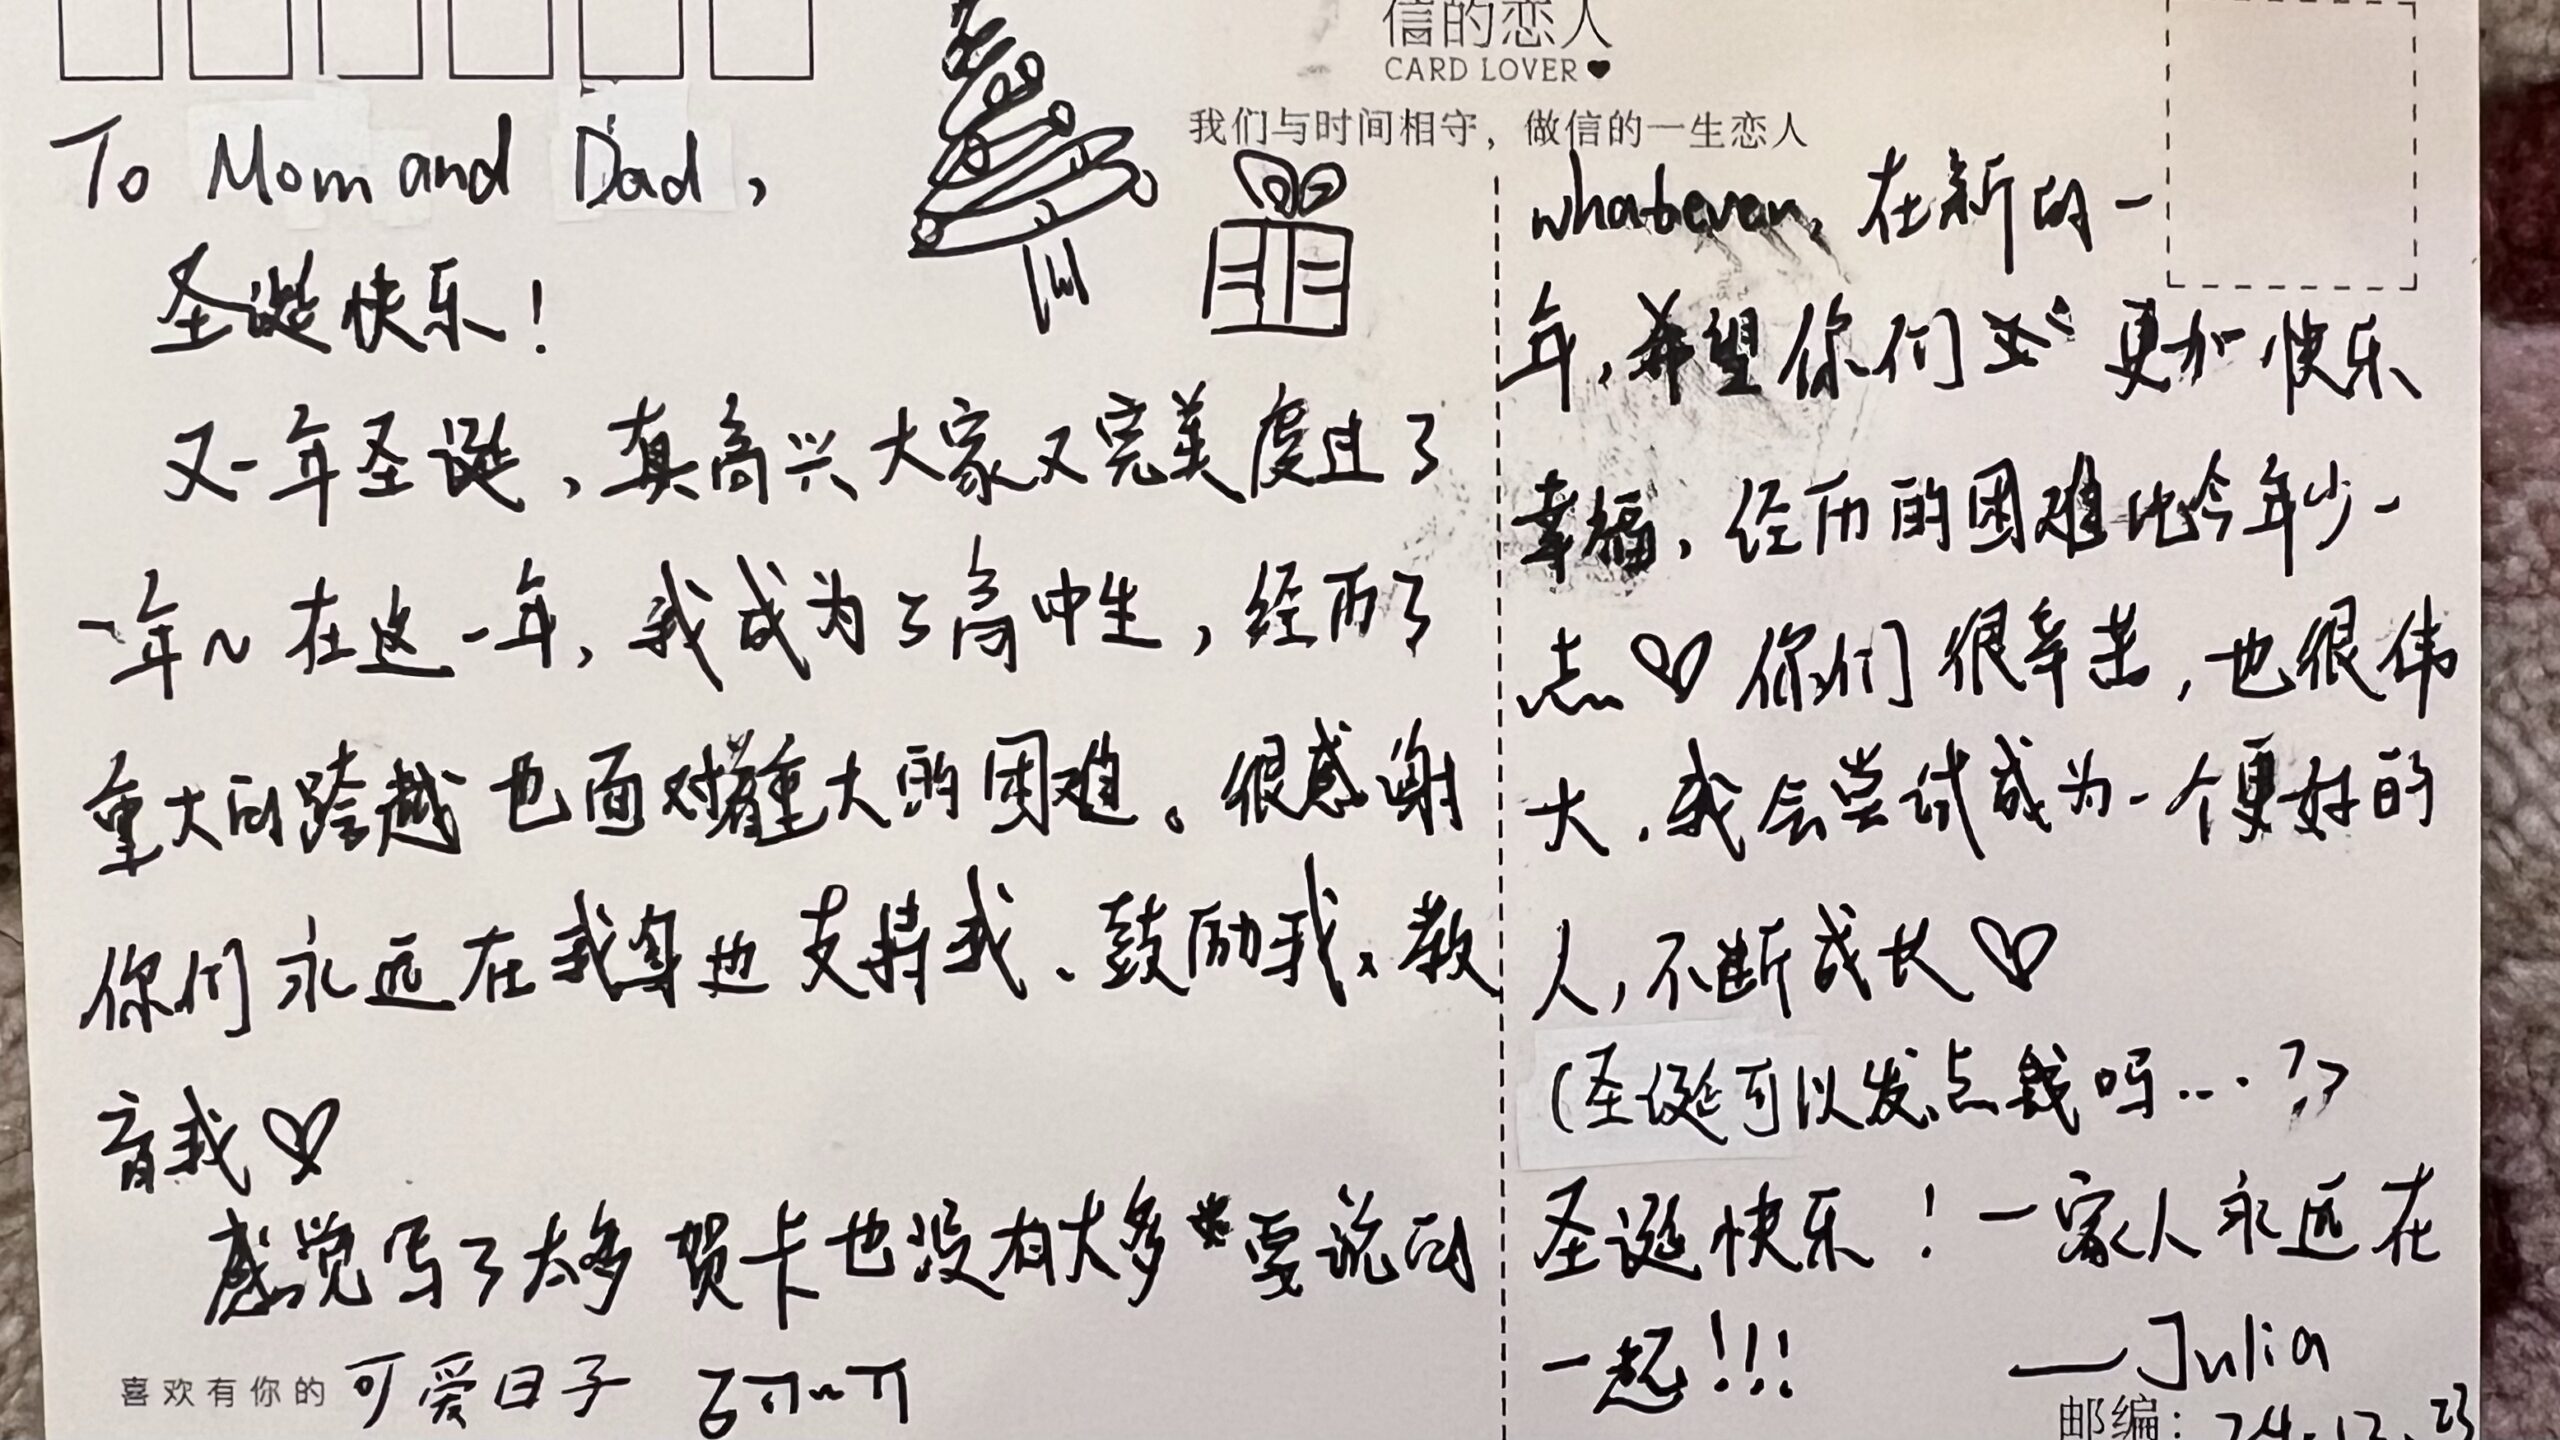 信的恋人
CARD LOVER
我们与时间相守，做信的一生恋人
To Mom and Dad,
圣诞快乐！
又一年圣诞，真高兴大家又完美度过了
一年~在这一年，我成为了高中生，经历了
重大的跨越也面对着重大的困难。很感谢
你们永远在我身边支持我、鼓励我、教
育我♡
感觉写了太多贺卡也没有太多要说的
喜欢有你的 可爱日子 了π~π
whatever, 在新的一
年，希望你们更加快乐
幸福，经历的困难比今年少一
点♡你们很辛苦，也很伟
大，我会尝试成为一个更好的
人，不断成长♡
(圣诞可以发点钱吗...?)
圣诞快乐！一家人永远在
一起！!!
—Julia
邮编：24.12.23